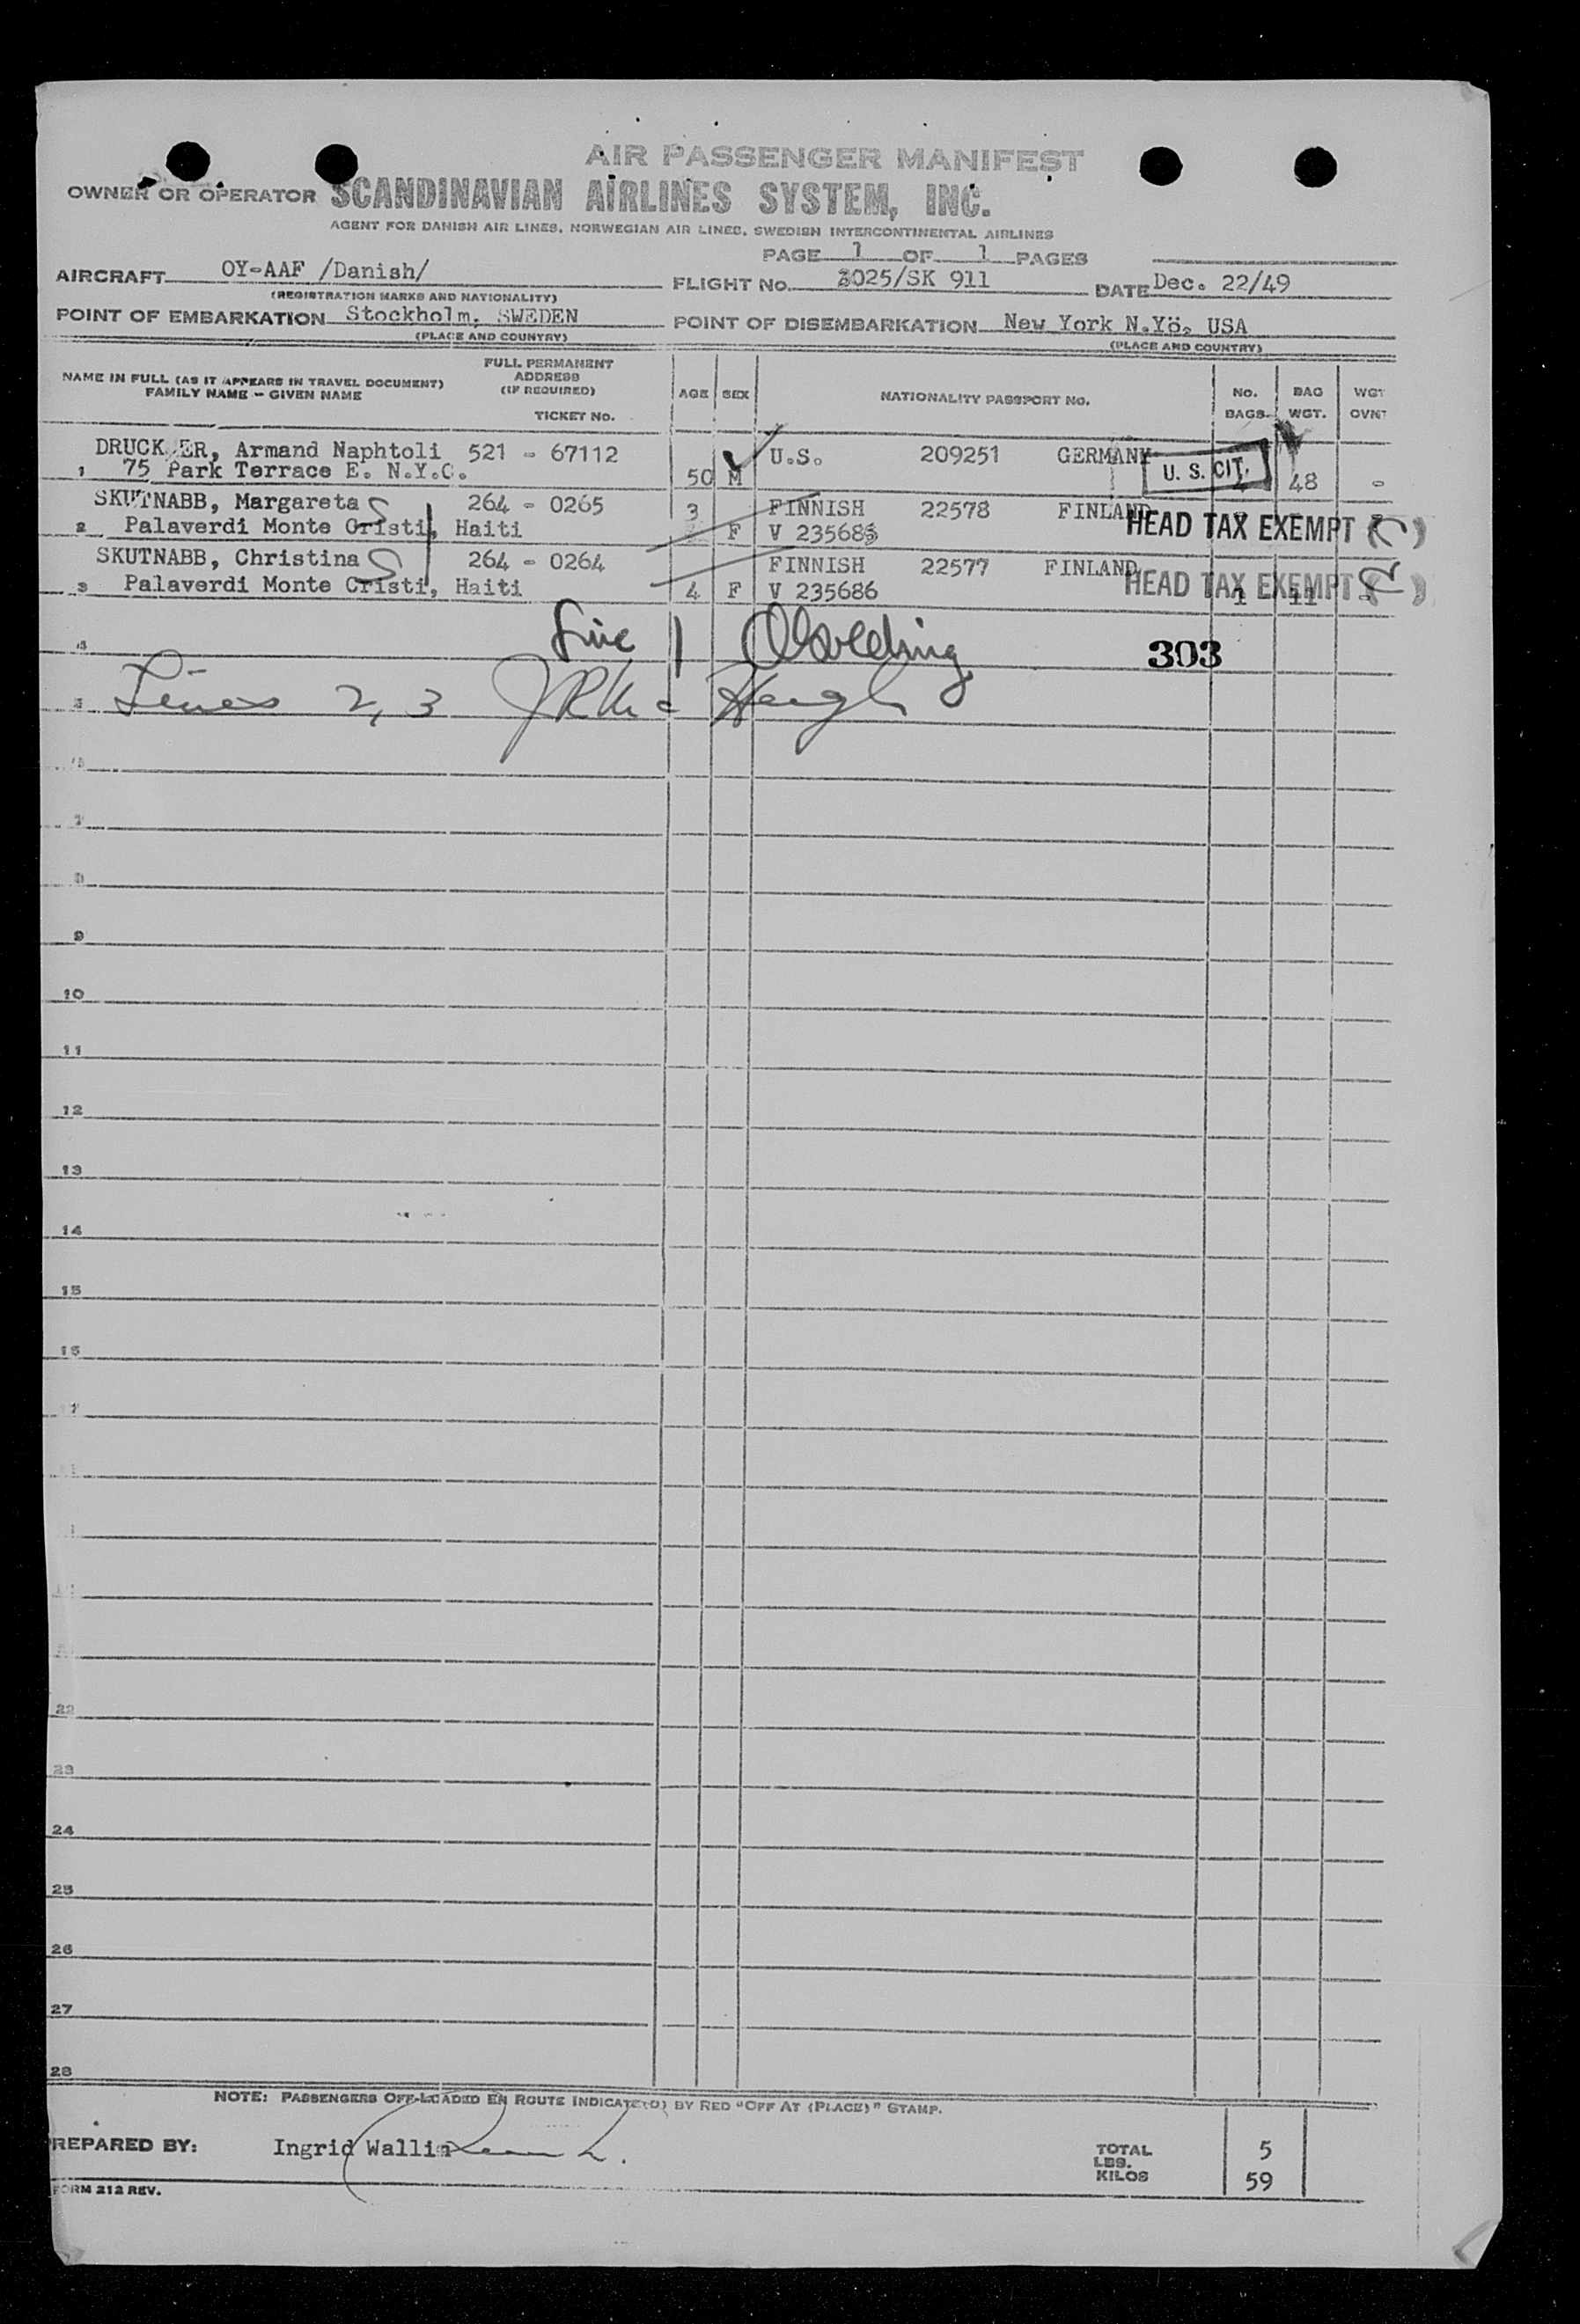 AIR PASSENGER MANIFEST
OWNER OR OPERATOR SCANDINAVIAN AIRLINES SYSTEM, INC.
AGENT FOR DANISH AIR LINES, NORWEGIAN AIR LINES, SWEDISH INTERCONTINENTAL AIRLINES
PAGE 1 OF 1 PAGES
AIRCRAFT OY-AAF /Danish/ FLIGHT No. 3025/SK 911 DATE Dec. 22/49
(REGISTRATION MARKS AND NATIONALITY)
POINT OF EMBARKATION Stockholm, SWEDEN POINT OF DISEMBARKATION New York N.Yö, USA
(PLACE AND COUNTRY) (PLACE AND COUNTRY)
NAME IN FULL (AS IT APPEARS IN TRAVEL DOCUMENT)
FAMILY NAME - GIVEN NAME
FULL PERMANENT
ADDRESS
(IF REQUIRED)
TICKET No.
AGE SEX NATIONALITY PASSPORT No. No. BAGS BAG WGT. WGT OVNT
DRUCKER, Armand Naphtoli 521 - 67112 U.S. 209251 GERMANY
1 75 Park Terrace E. N.Y.C. 50 M U. S. CIT. 48 -
SKUTNABB, Margareta 264 - 0265 3 FINNISH 22578 FINLAND
2 Palaverdi Monte Cristi, Haiti F V 235685 HEAD TAX EXEMPT ( )
SKUTNABB, Christina 264 - 0264 FINNISH 22577 FINLAND
3 Palaverdi Monte Cristi, Haiti 4 F V 235686 HEAD TAX EXEMPT ( ) 1 11 -
4 Line 1 303
5 Lines 2, 3
7
8
9
10
11
12
13
14
15
16
17
22
23
24
25
26
27
28
NOTE: PASSENGERS OFF-LOADED EN ROUTE INDICATE(D) BY RED "OFF AT (PLACE)" STAMP.
PREPARED BY: Ingrid Wallin
TOTAL 5
LBS.
KILOS 59
FORM 212 REV.